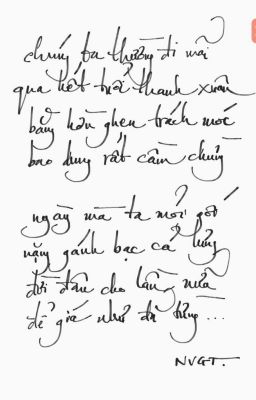 chúng ta thường đi mãi
qua hết trời thanh xuân
bằng hờn ghen trách móc
bao dung rất cần chừng
ngày mà ta mỏi gót
nặng gánh bạc cả lưng
đời đâu cho lần nữa
để giá như đã từng ...
NVGT.